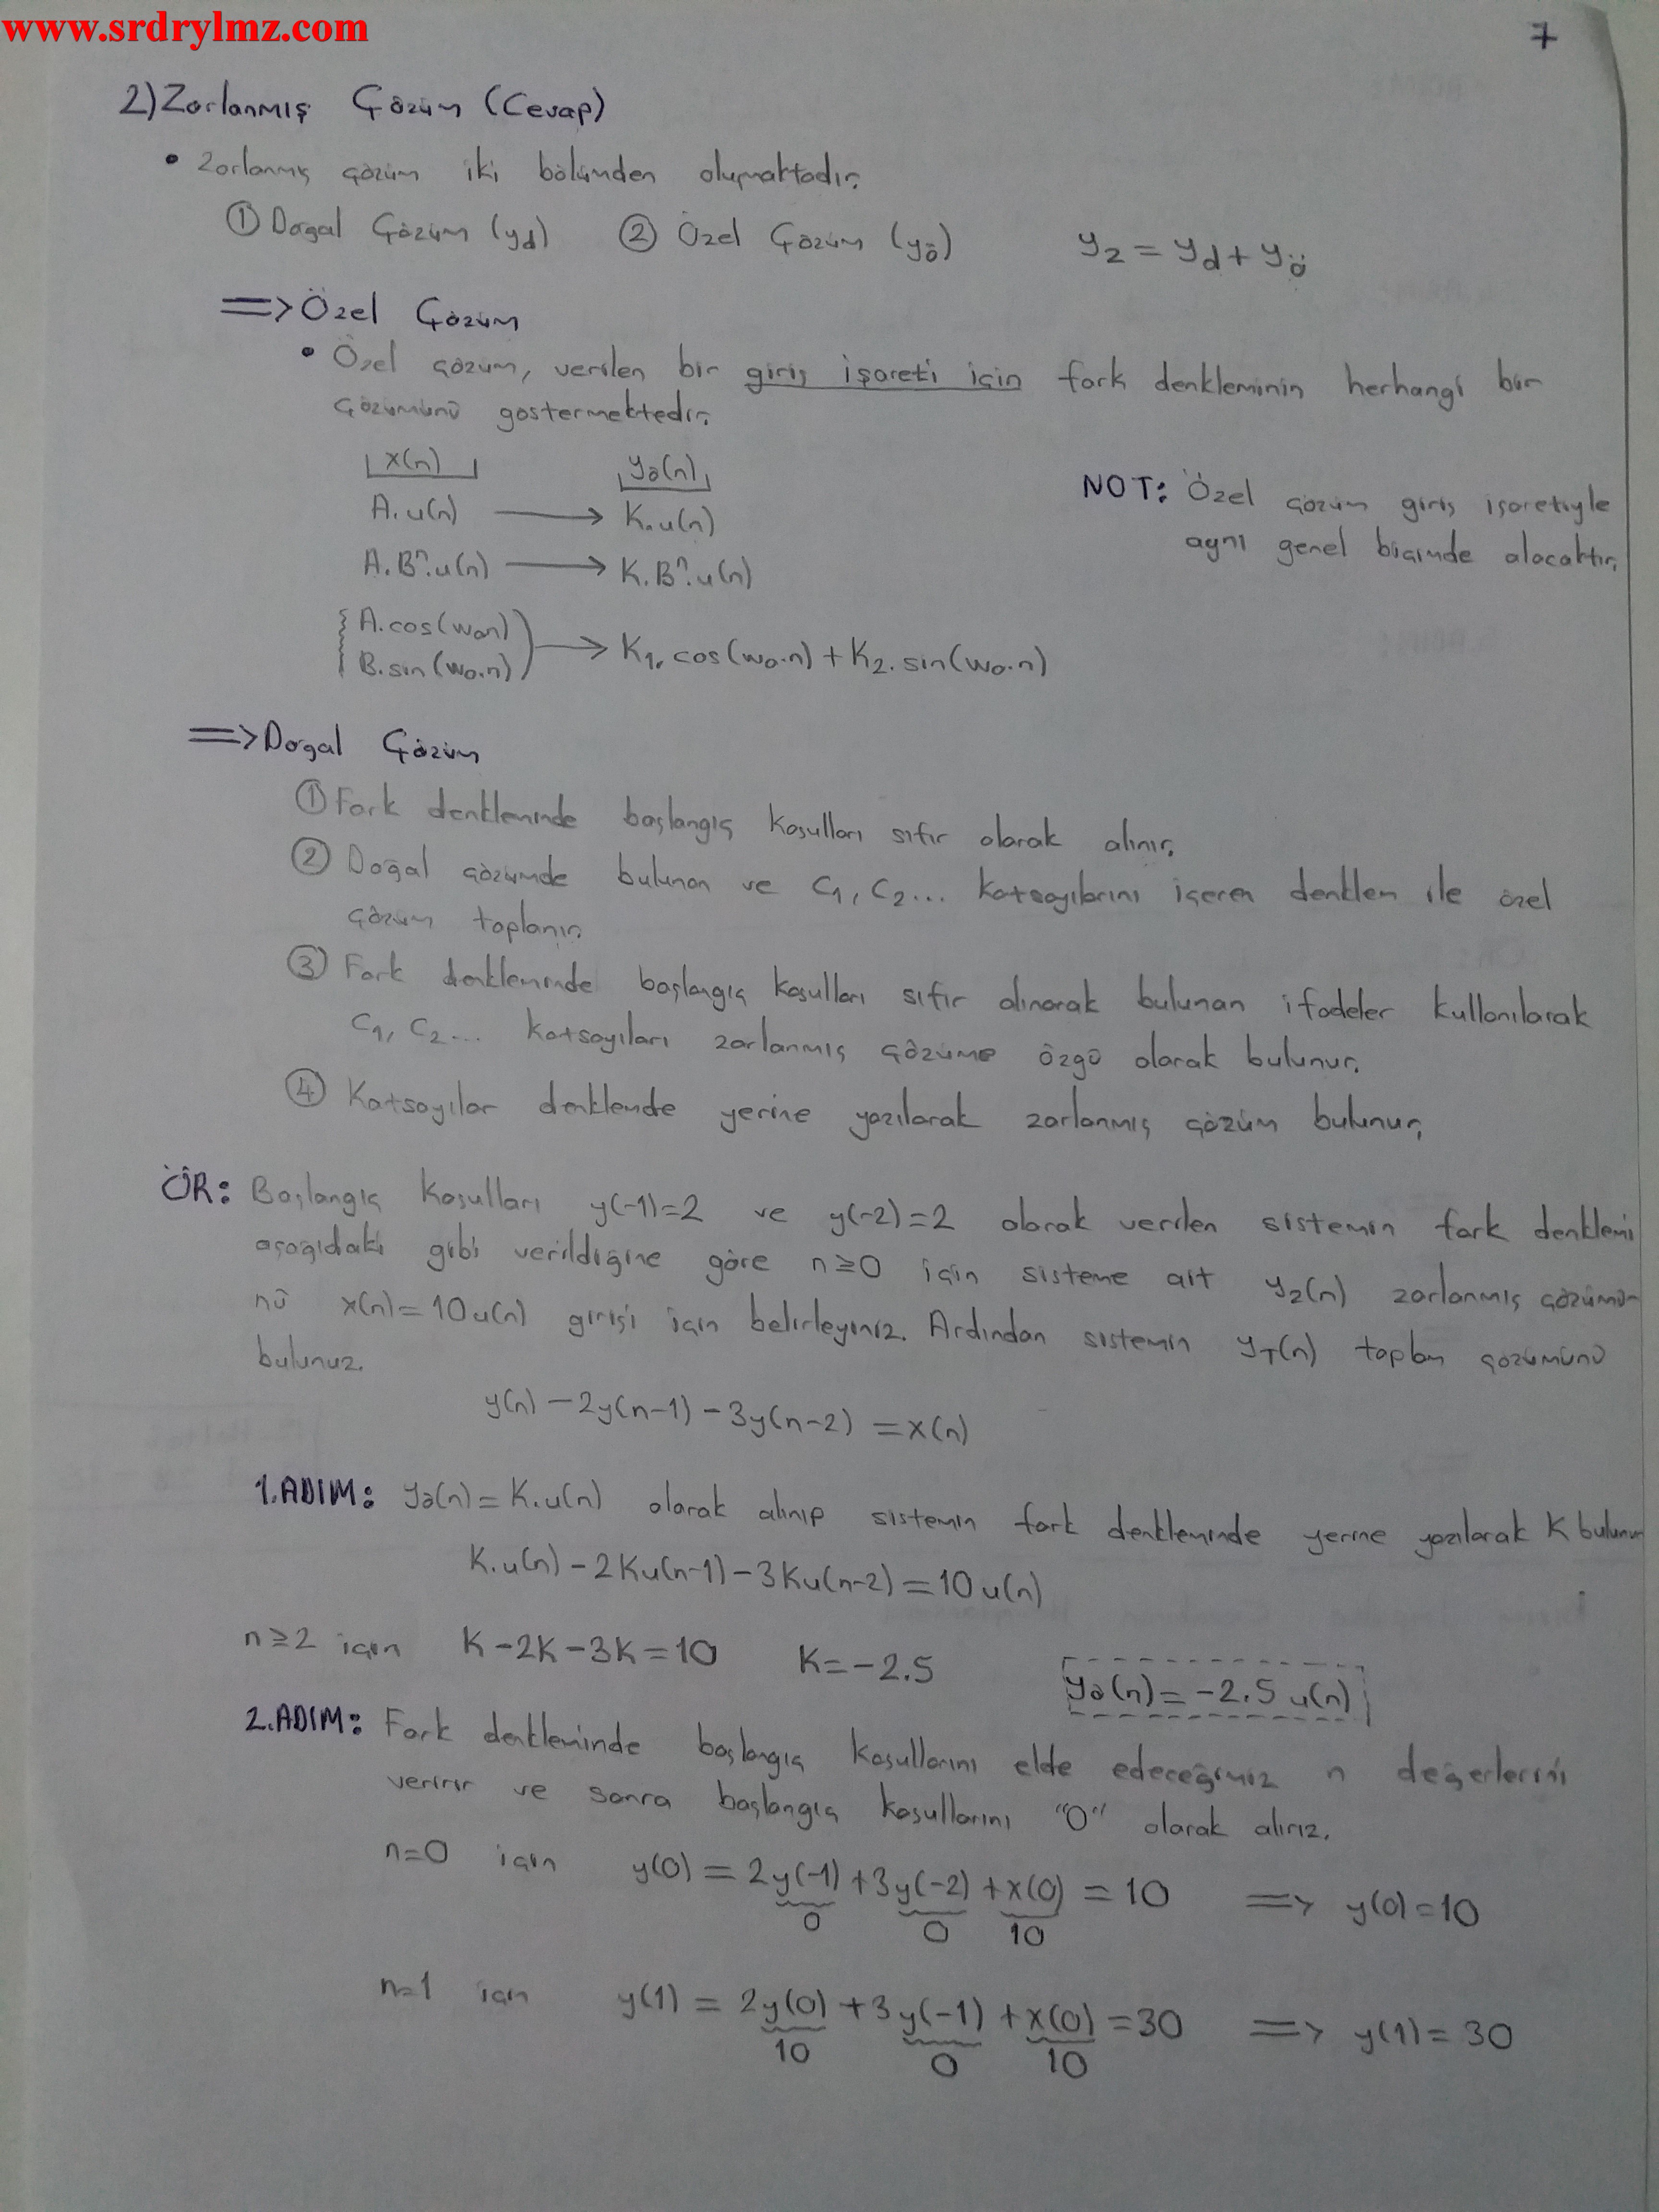 www.srdrylmz.com
7
2) Zorlanmış Çözüm (Cevap)
• Zorlanmış çözüm iki bölümden oluşmaktadır.
① Doğal Çözüm (yd) ② Özel Çözüm (yö) yz = yd + yö
=> Özel Çözüm
• Özel çözüm, verilen bir giriş işareti için fark denkleminin herhangi bir
çözümünü göstermektedir.
x(n) yö(n)
NOT: Özel çözüm giriş işaretiyle
A.u(n) → K.u(n)
aynı genel biçimde olacaktır.
A.Bⁿ.u(n) → K.Bⁿ.u(n)
A.cos(w0n)
B.sin(w0.n) → K1.cos(w0.n) + K2.sin(w0.n)
=> Doğal Çözüm
① Fark denkleminde başlangıç koşulları sıfır olarak alınır.
② Doğal çözümde bulunan ve C1, C2... katsayılarını içeren denklem ile özel
çözüm toplanır.
③ Fark denkleminde başlangıç koşulları sıfır alınarak bulunan ifadeler kullanılarak
C1, C2... katsayıları zorlanmış çözüme özgü olarak bulunur.
④ Katsayılar denklemde yerine yazılarak zorlanmış çözüm bulunur.
ÖR: Başlangıç koşulları y(-1)=2 ve y(-2)=2 olarak verilen sistemin fark denklemi
aşağıdaki gibi verildiğine göre n≥0 için sisteme ait yz(n) zorlanmış çözümü-
nü x(n)=10u(n) girişi için belirleyiniz. Ardından sistemin yT(n) toplam çözümünü
bulunuz.
y(n) - 2y(n-1) - 3y(n-2) = x(n)
1.ADIM: yö(n)= K.u(n) olarak alınıp sistemin fark denkleminde yerine yazılarak K bulunur
K.u(n) - 2Ku(n-1) - 3Ku(n-2) = 10u(n)
n≥2 için K-2K-3K=10 K=-2.5 yö(n)= -2.5 u(n)
2.ADIM: Fark denkleminde başlangıç koşullarını elde edeceğimiz n değerlerini
veririr ve sonra başlangıç koşullarını "0" olarak alırız.
n=0 için y(0) = 2y(-1) + 3y(-2) + x(0) = 10 => y(0)=10
0 0 10
n=1 için y(1) = 2y(0) + 3y(-1) + x(0) = 30 => y(1)= 30
10 0 10